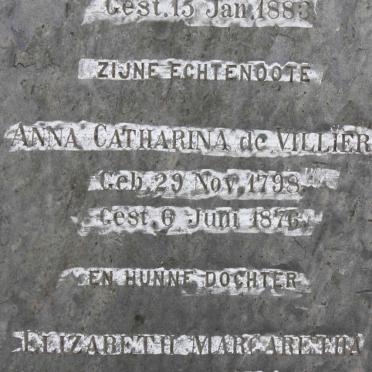 Gest. 15 Jan. 1883
ZIJNE ECHTENOOTE
ANNA CATHARINA de VILLIER
Geb. 29 Nov. 1798
Gest. 6 Juni 1876.
EN HUNNE DOCHTER
ELIZABETH MARGARETHA